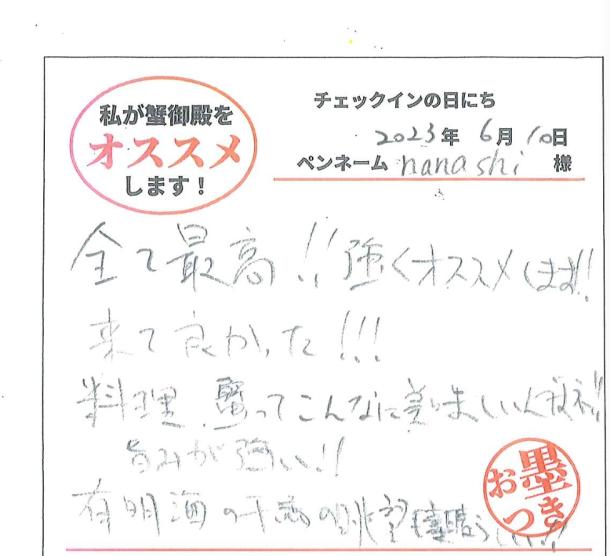 私が蟹御殿を
オススメ
します！
チェックインの日にち
2023年 6月 10日
ペンネーム nanashi 様
全て最高!! 強くオススメします!!
来て良かった!!!
料理、蟹ってこんなに美味しいんですね!!
旨みが強い!!
有明海の干満の眺望も素晴らしい!!
お墨
つき